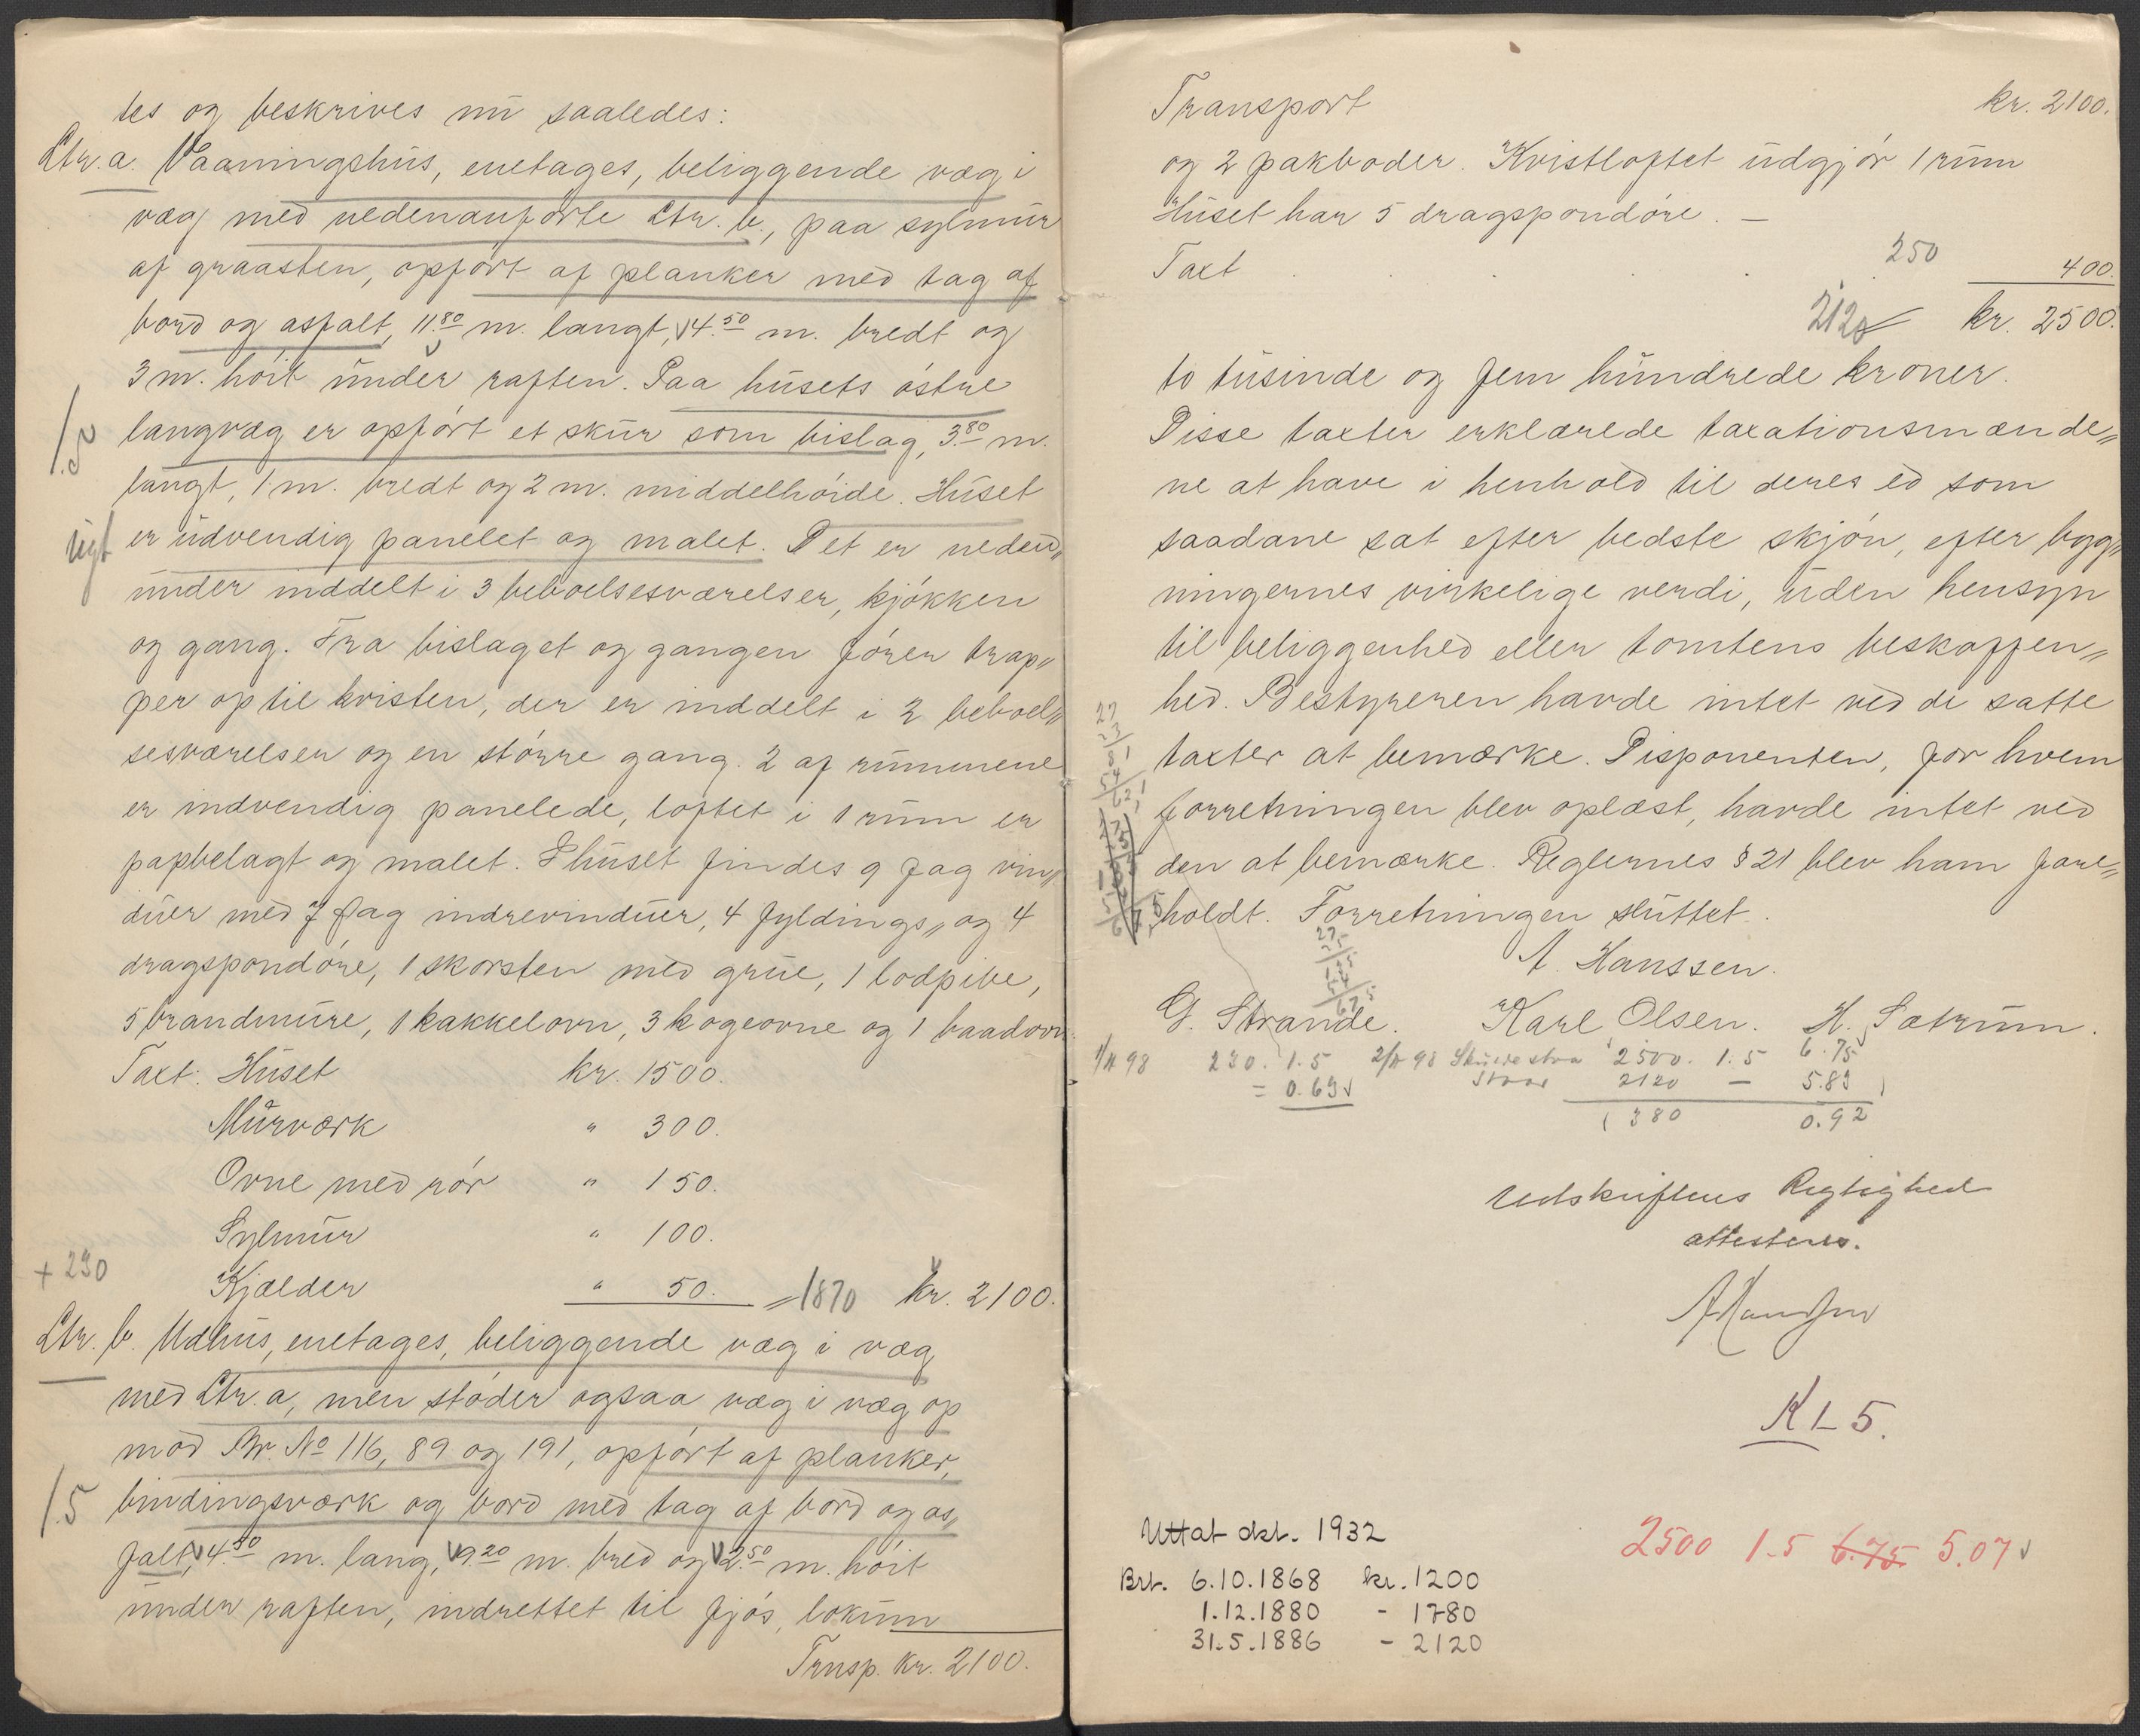 tes og beskrives nu saaledes:
Ltr. a. Vaaningshus, enetages, beliggende væg i
væg med nedenanførte Ltr. b., paa sylmur
af graasten, opført af planker med tag af
bord og asfalt, 11.80 m. langt, 4.50 m. bredt og
3 m. høit under raften. Paa husets østre
1.5
langvæg er opført et skur som bislag, 3.80 m.
langt, 1 m. bredt og 2 m. middelhøide. Huset
er udvendig panelet og malet. Det er neden„
under inddelt i 3 beboelsesværelser, kjøkken
og gang. Fra bislaget og gangen fører trap„
per op til kvisten, der er inddelt i 2 beboel„
sesværelser og en større gang. 2 af rummene
er indvendig panelede, loftet i 1 rum er
papbelagt og malet. I huset findes 9 fag vin„
duer med 7 fag indrevinduer, 4 fyldings„ og 4
dragspondøre, 1 skorsten med grue, 1 lodpibe,
5 brandmure, 1 kakkelovn, 3 kogeovne og 1 baadovn.
Taxt: Huset kr. 1500.
Murværk " 300.
Ovne med rør " 150.
Sylmur " 100.
+ 230
Kjælder " 50. = 1870 kr. 2100.
Ltr. b. Udhus, enetages, beliggende væg i væg
med Ltr. a, men støder ogsaa væg i væg op
mod Br. No 116, 89 og 191, opført af planker,
1.5
bindingsværk og bord med tag af bord og as„
falt, 4.50 m. lang, 9.20 m. bred og 2.50 m. høit
under raften, indrettet til fjøs, lokum
Trnsp. kr. 2100.
Transport kr. 2100.
og 2 pakboder. Kvistloftet udgjør 1 rum
Huset har 5 dragspondøre. —
Taxt . . . 250 400.
2120 kr. 2500.
to tusinde og fem hundrede kroner.
Disse taxter erklærede taxationsmænde„
ne at have i henhold til deres ed som
saadane sat efter bedste skjøn, efter byg„
ningernes virkelige verdi, uden hensyn
til beliggenhed eller tomtens beskaffen„
hed. Bestyreren havde intet ved de satte
taxter at bemærke. Disponenten, for hvem
forretningen blev oplæst, havde intet ved
den at bemærke. Reglernes § 21 blev ham fore„
holdt. Forretningen sluttet.
A. Hanssen.
G. Strande. Karl Olsen. H. Sætrum.
230. 1.5 2500. 1.5 6.75
= 0.69 2120 — 5.83
380 0.92
Udskriftens Rigtighed
attesteres.
AHanssen
K L 5.
Uttat okt. 1932
2500 1.5 6.75 5.07
Brt. 6.10.1868 kr. 1200
1.12.1880 - 1780
31.5.1886 - 2120